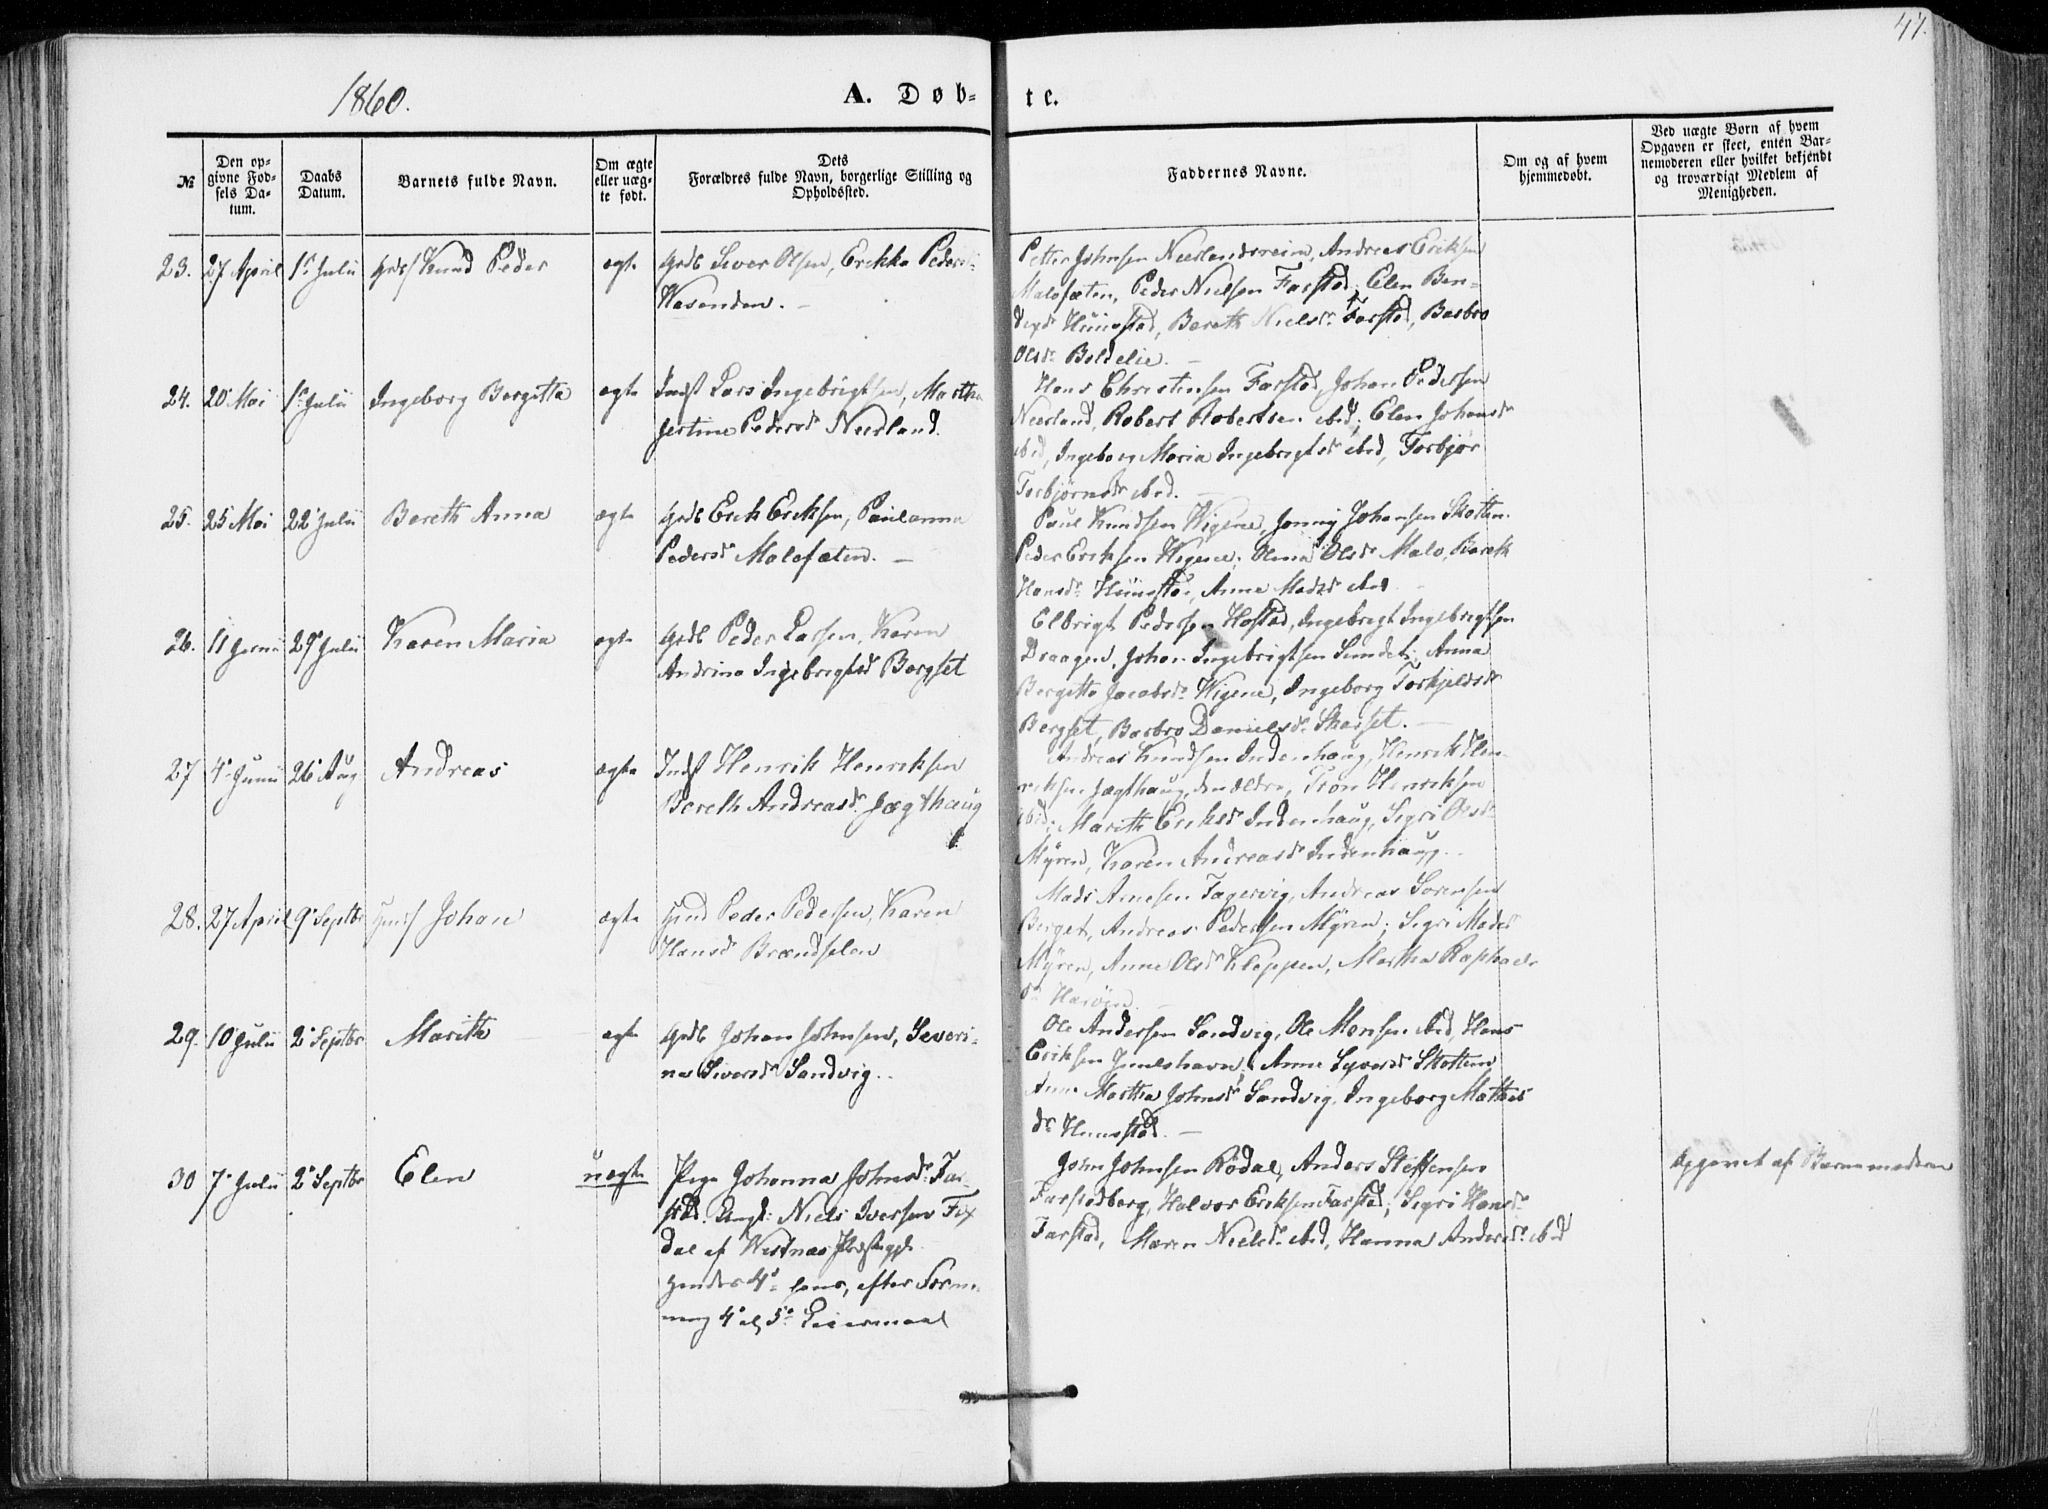 47.
1860.
A. Døb- te.
№
Den op-
givne Fød-
sels Da-
tum.
Daabs
Datum.
Barnets fulde Navn.
Om ægte
eller uæg-
te født.
Dets
Forældres fulde Navn, borgerlige Stilling og
Opholdssted.
Faddernes Navne.
Om og af hvem
hjemmedøbt.
Ved uægte Børn af hvem
Opgaven er skeet, enten Bar-
nemoderen eller hvilket bekjendt
og troværdigt Medlem af
Menigheden.
23. 27 April 1 Julii Knud Peder ægte Sever Olsen, Erikka Peders
Vasenden.
Petter Johnsen Neerlandsreim, Andreas Eriksen
Malosæten, Peder Nielsen Farstad, Elen Ben-
Huustad, Bereth Nielsdr Farstad, Barbro
Olsdr Boldelie.
24. 20 Mai 1 Julii Ingeborg Bergitta ægte Indst Lars Ingebrigtsen, Martha
Jertine Pedersdr Neerland.
Hans Christensen Farstad, Johan Pedersen
Neerland, Robert Robertsen ibid; Elen Johansdr
ibid, Ingeborg Maria Ingebrigtsdr ibid, Torbjør
Torbjørnsdr ibid.
25. 25 Mai 22 Julii Bereth Anna ægte Erik Eriksen, Paulanna
Pedersdr Malosæten.
Paul Knudsen Wigene, Jonny Johansen Skotten.
Peder Eriksen Wigene; Olina Olsdr Malo, Bereth
Hansdr Huustad, Anne Madsdr ibid
26. 11 Junii 29 Julii Karen Maria ægte Peder Larsen, Karen
Andrina Ingebrigtsdr Bergset
Elbrigt Pedersen Hostad, Ingebrigt Ingebrigtsen
Draagen, Johan Ingebrigtsen Sundet; Anna
Bergitta Jacobsdr Wigene, Ingeborg Torkjeldsdr
Bergset, Barbro Danielsdr Skarset.
27 4 Junii 26 Aug Andreas ægte Indst Henrik Henriksen
Bereth Andreasdr Jægthaug
Andreas Knudsen Indenhaug, Henrik Hen-
riksen Jægthaug, den ældre, Tron Henriksen
ibid; Marith Eriksdr Indenhaug, Sigri Olsdr
Myren, Karen Andreasdr Indenhaug.
28. 27 April 9 Septbr Johan ægte Peder Pedersen, Karen
Hansdr Brændselen
Mads Arnesen Fagervig, Andreas Sørensen
Berget, Andreas Pedersen Myren; Sigri Madsdr
Myren, Anne Olsdr Kleppen, Martha Raphaels
dr Harøen.
29. 10 Julii 2 Septbr Marith ægte Johan Johnsen, Severi-
na Siversdr Sandvig.
Ole Andersen Sandvig, Ole Monsen ibid, Hans
Eriksen Juulshavn; Anne Syversdr Skotten
Anne Martha Johnsdr Sandvig, Ingeborg Mathis
dr Huustad.
30 7 Julii 2 Septbr Elen uægte Pige Johanna Johnsdr Far-
stad. Ungk: Niels Iversen Fix
dal af Westnæs Præstegjld
hendes 4, hans, efter Forme-
ning 4 el 5 Leiermaal
John Johnsen Rødal, Anders Steffensen
Farstadberg, Halvor Eriksen Farstad; Sigri Hansdr
Farstad, Maren Nielsdr ibid, Hanna Andersdr ibid
Opgivet af Barnemoderen